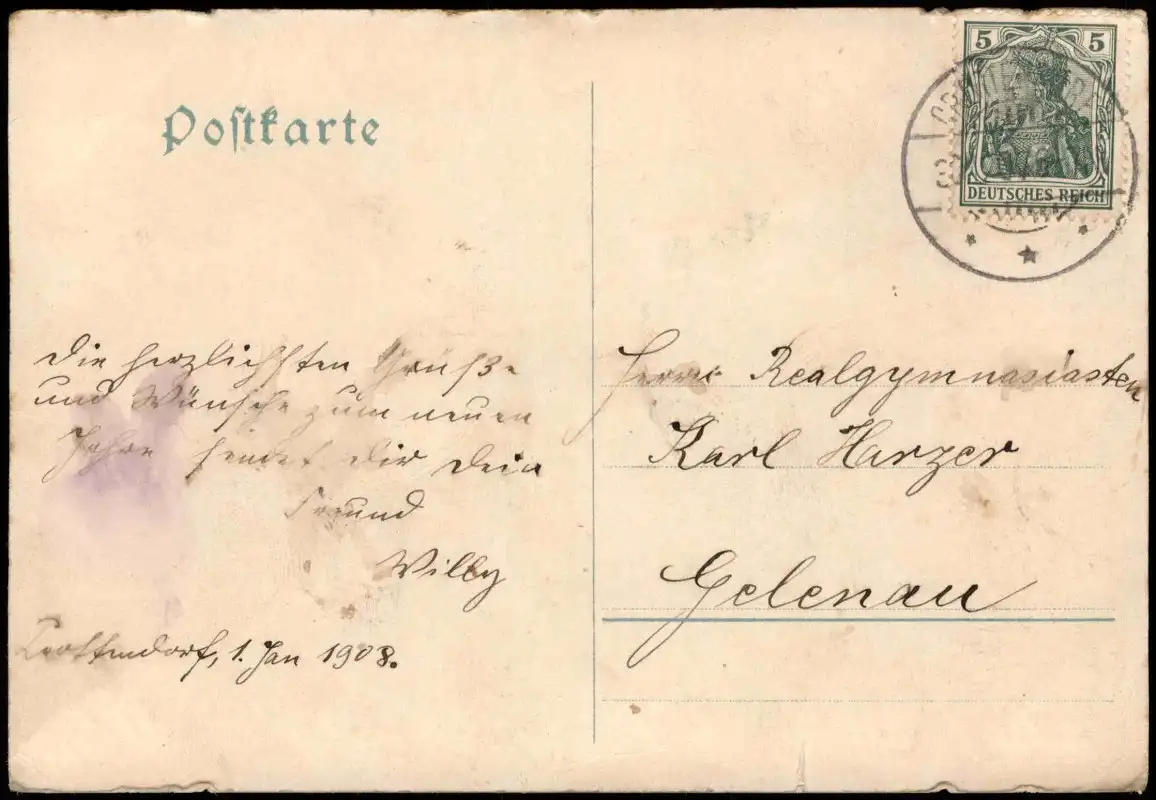 Postkarte
5 5
DEUTSCHES REICH
Die herzlichsten Grüße
und Wünsche zum neuen
Jahre sendet dir Dein
Freund
Willy
Crottendorf, 1. Jan 1908.
Herrn Realgymnasiasten
Karl Harzer
Gelenau